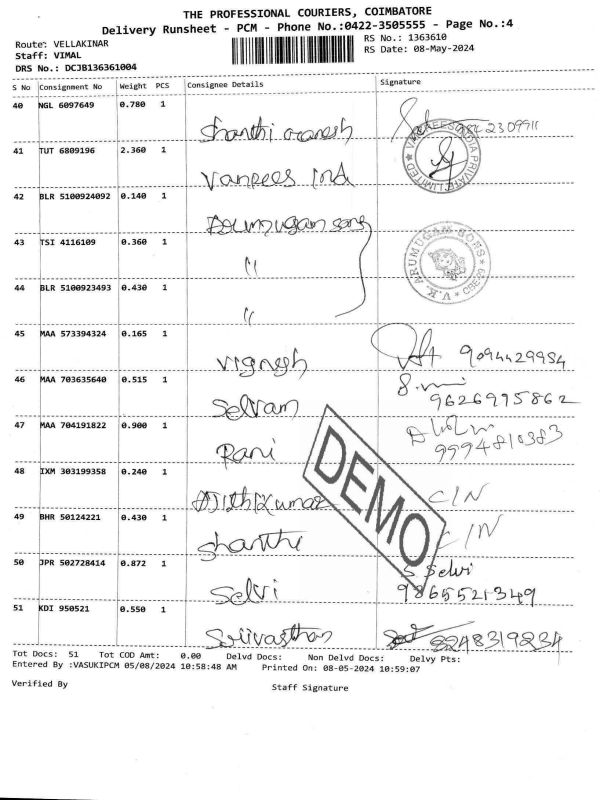 THE PROFESSIONAL COURIERS, COIMBATORE
Delivery Runsheet - PCM - Phone No.:0422-3505555 - Page No.:4
Route: VELLAKINAR RS No.: 1363610
Staff: VIMAL RS Date: 08-May-2024
DRS No.: DCJB136361004
S No Consignment No Weight PCS Consignee Details Signature
40 NGL 6097649 0.780 1
Shanthi
41 TUT 6809196 2.360 1
Vanpees Ind
42 BLR 5100924092 0.140 1
Arumugam sons
43 TSI 4116109 0.360 1
"
44 BLR 5100923493 0.430 1
"
V.K. ARUMUGAM SONS
45 MAA 573394324 0.165 1
Vignesh 9094429954
46 MAA 703635640 0.515 1
Selvam 9626995862
47 MAA 704191822 0.900 1
Rani 9994810383
48 IXM 303199358 0.240 1
Ajith Kumar C/N
49 BHR 50124221 0.430 1
Shanthi C/N
50 JPR 502728414 0.872 1
Selvi S Selvi
9865521349
51 KDI 950521 0.550 1
Srivasthan 8248319234
DEMO
Tot Docs: 51 Tot COD Amt: 0.00 Delvd Docs: Non Delvd Docs: Delvy Pts:
Entered By :VASUKIPCM 05/08/2024 10:58:48 AM Printed On: 08-05-2024 10:59:07
Verified By Staff Signature